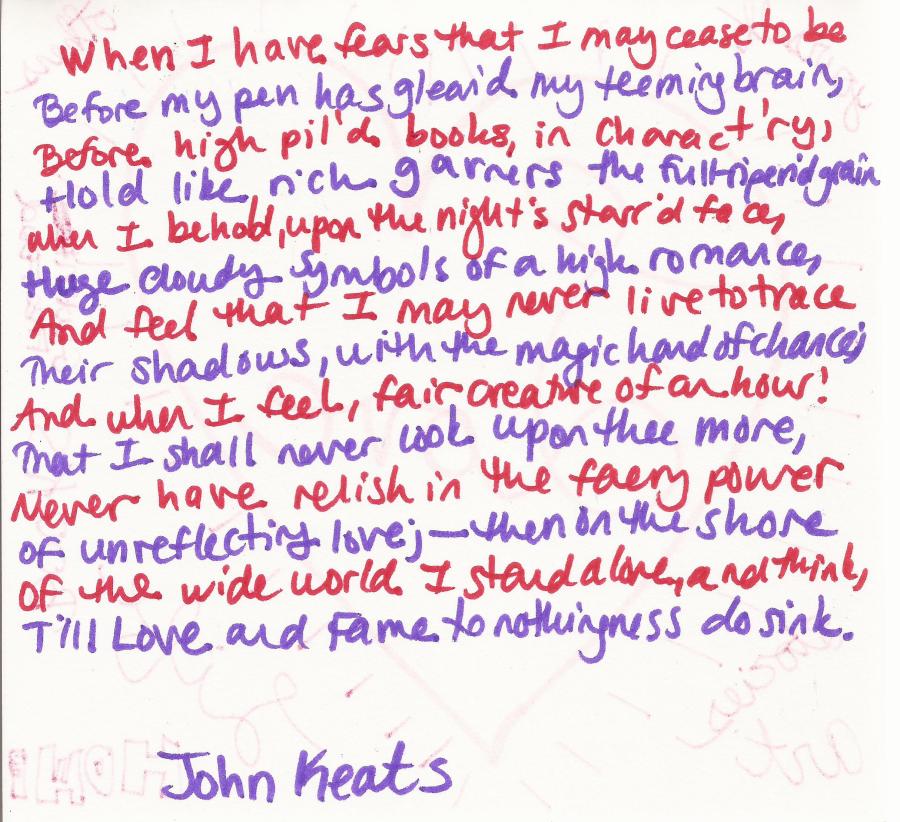 When I have fears that I may cease to be
Before my pen has glean'd my teeming brain,
Before high pil'd books, in charact'ry,
Hold like rich garners the full-ripen'd grain
when I behold, upon the night's starr'd face,
Huge cloudy symbols of a high romance,
And feel that I may never live to trace
Their shadows, with the magic hand of chance;
And when I feel, fair creature of an hour!
That I shall never look upon thee more,
Never have relish in the faery power
of unreflecting love;—then on the shore
of the wide world I stand alone, and think,
Till Love and Fame to nothingness do sink.
John Keats